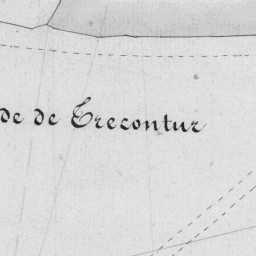 de de Trecontur